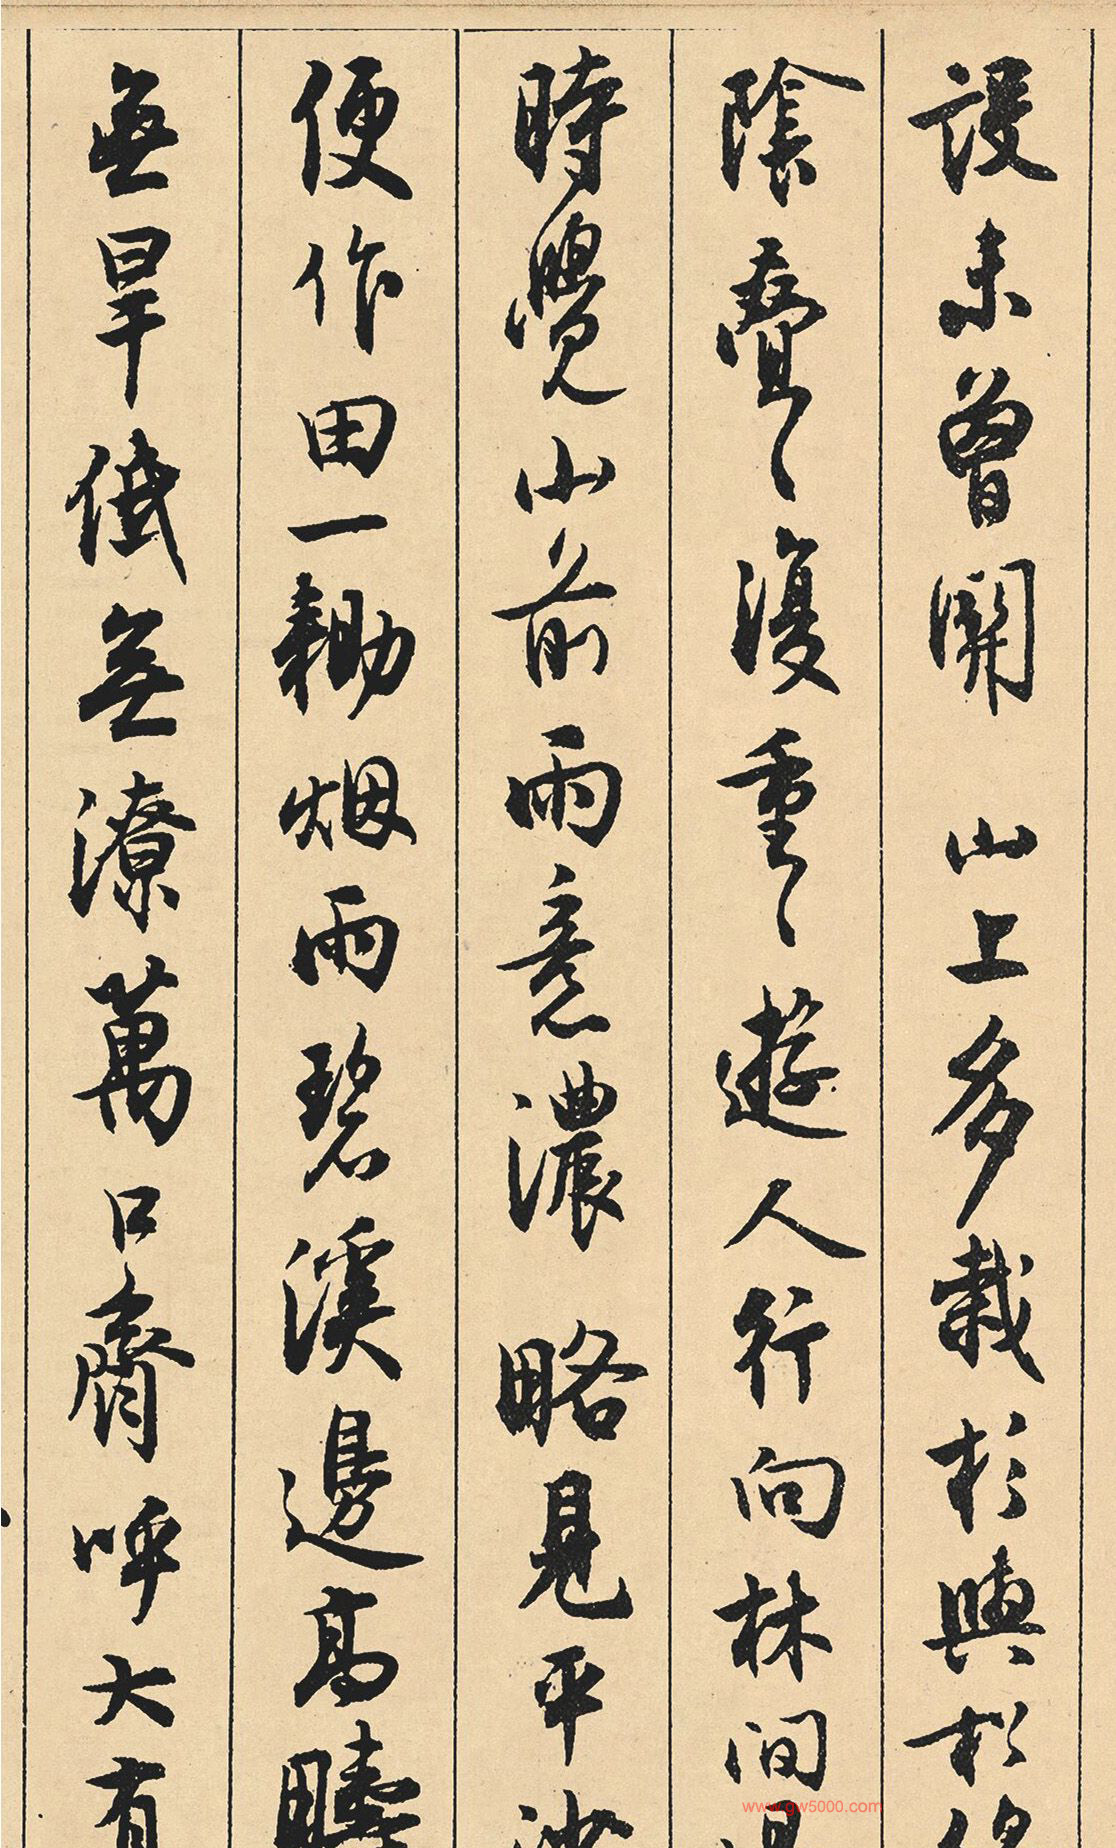 設未曾開 山上多栽杉與松
陰疊々復重々遊人行向林間
時覺山前雨意濃 略見平沙
便作田一耡烟雨碧溪邊高疇
無旱低無潦萬口齊呼大有
www.gw5000.com